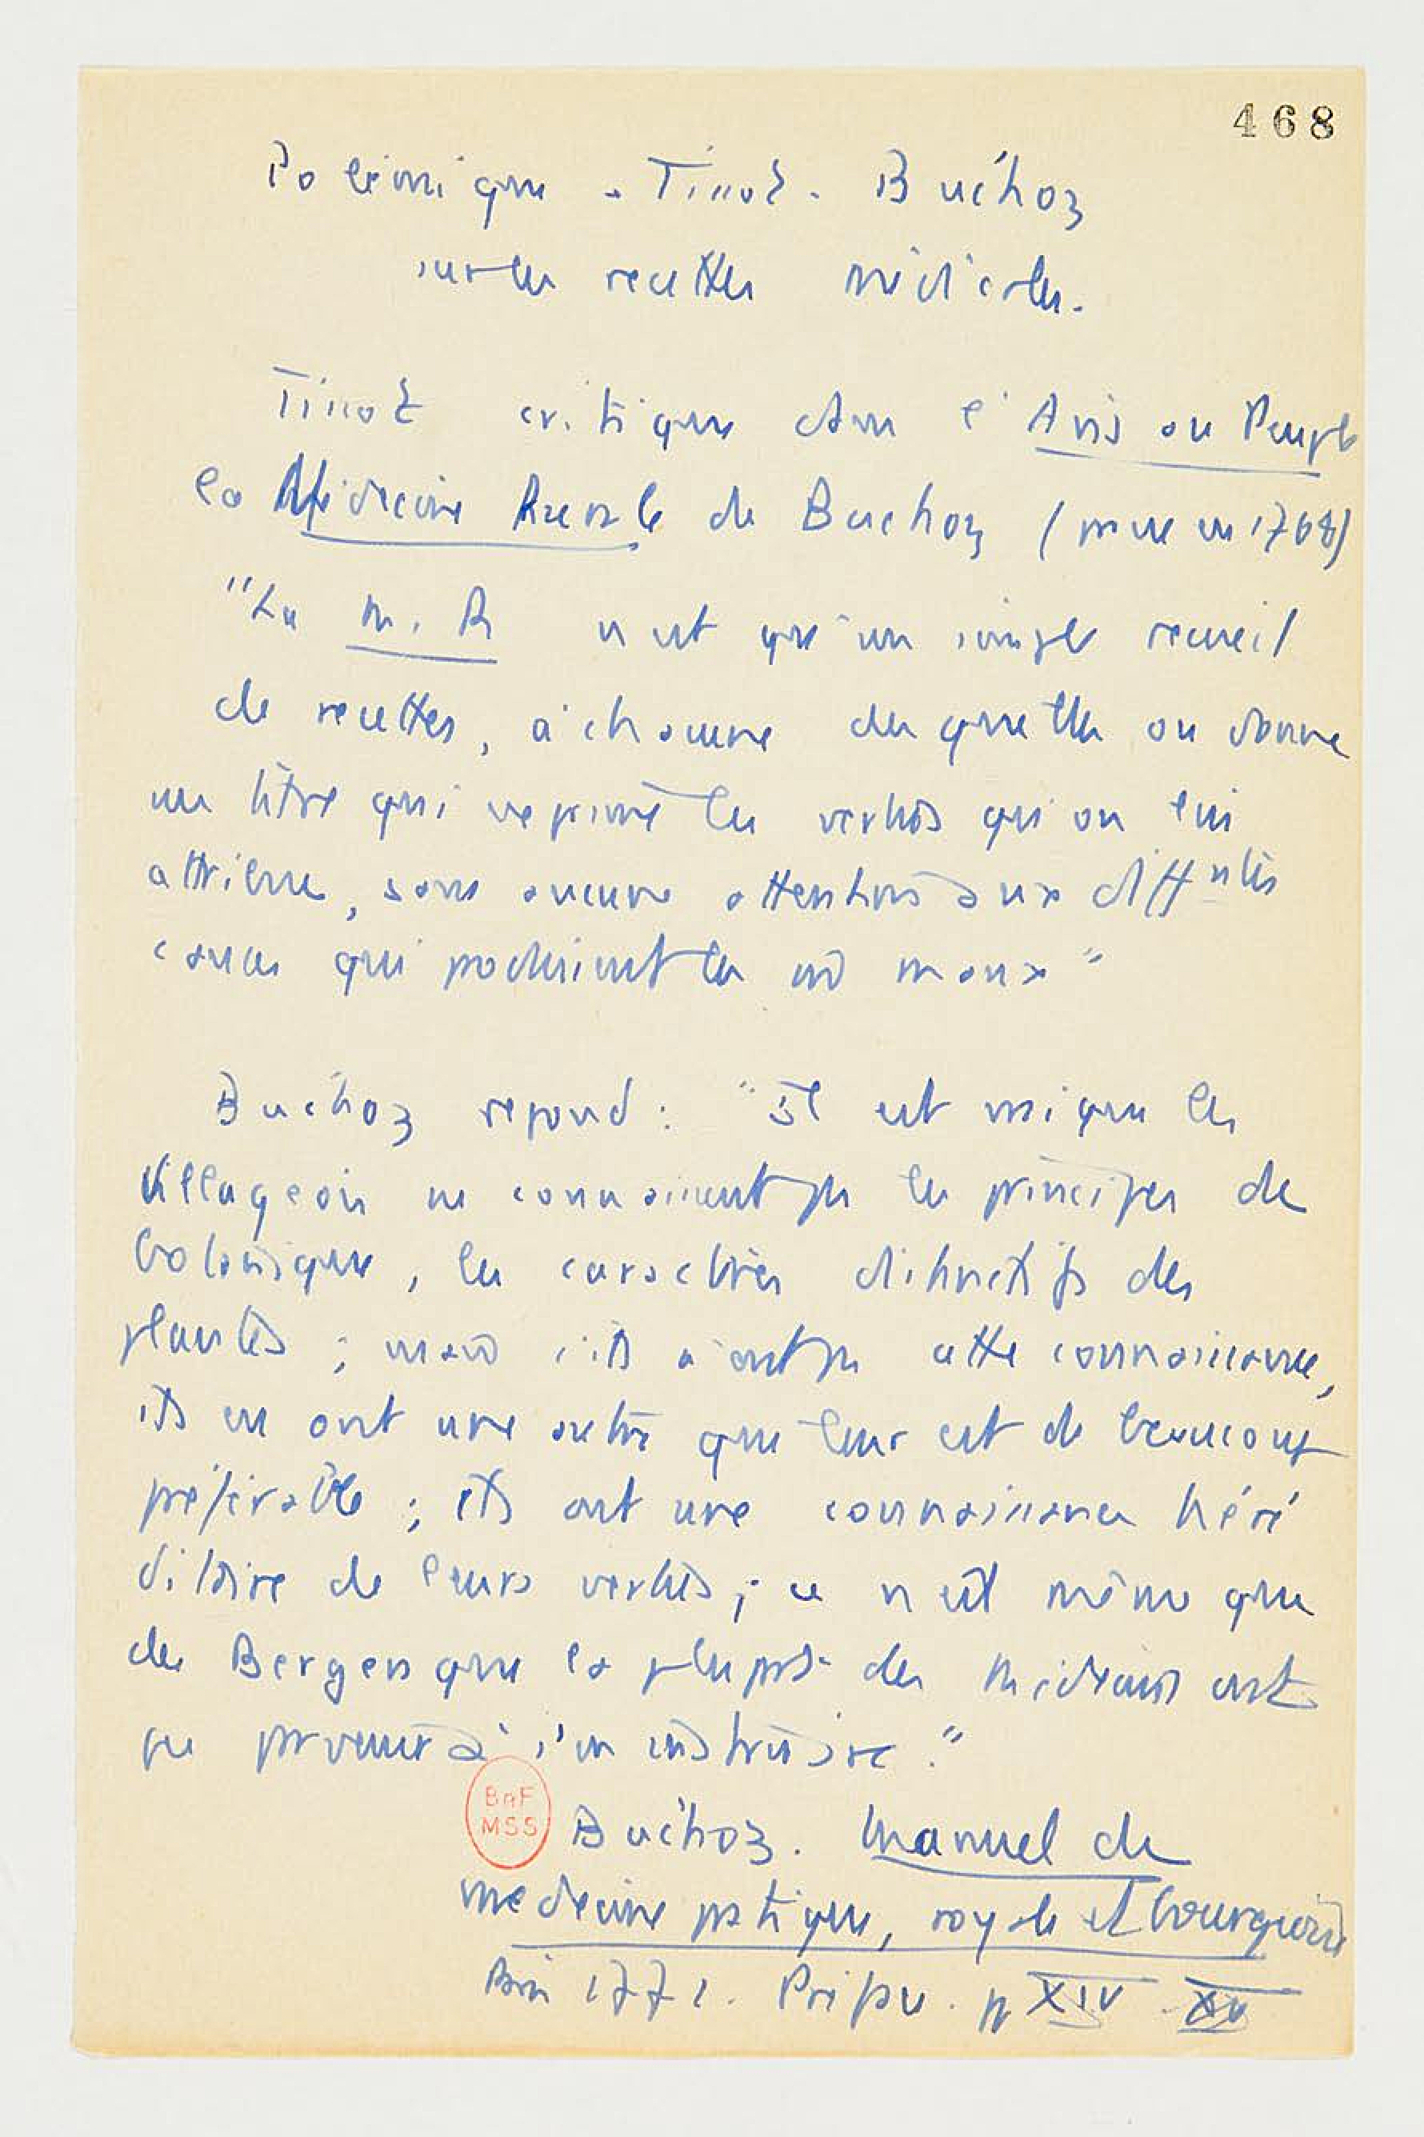 468
Polémique - Tissot - Buchoz
sur les recettes médicales.
Tissot critique dans l'Avis au Peuple
la Médecine Rurale de Buchoz (parue en 1768)
"La M. R n'est qu'un simple recueil
de recettes, à chacune desquelles on donne
un titre qui exprime les vertus qu'on lui
attribue, sans aucune attention aux difftes
causes qui produisent les maux"
Buchoz repond : "il est vrai que les
villageois ne connaissent pas les principes de
botanique, les caractères distinctifs des
plantes ; mais s'ils n'ont pas cette connaissance,
ils en ont une autre que leur est de beaucoup
préférable ; ils ont une connaissance héré
ditaire de leurs vertus ; ce n'est même que
des Bergers que la plupart des médecins ont
pu parvenir à s'en instruire."
BnF
MSS
Buchoz. Manuel de
medecine pratique, royale et bourgeoise
Paris 1771. Préface. p XIV XV